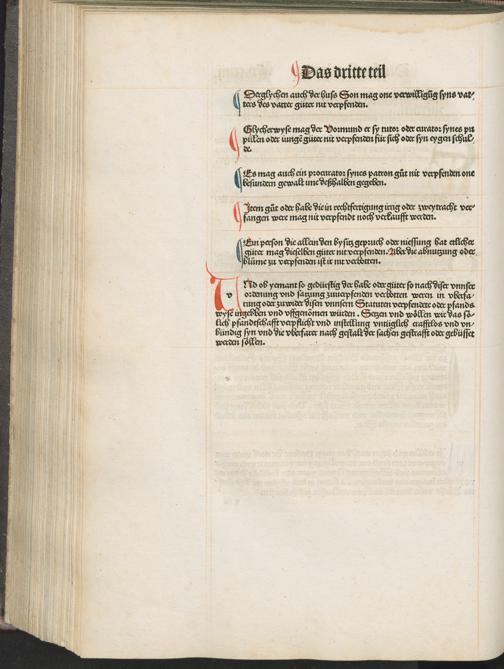 Das dritte teil
Derglychen auch der huß Son mag one verwilligūg syns vat⸗
ters des vatter güter nit verpfenden.
Glycherwyse mag der Vormund er sy tutor oder curator synes pu
pillen oder iungē güter nit verpfenden für sich oder syn eygen schul⸗
de.
Es mag auch ein procurator synes patron gůt nit verpfenden one
besundern gewalt ime deßhalben gegeben.
Item gůt oder habe die in rechtfertigung irrig oder zweytracht ver⸗
fangen were mag nit verpfendt noch verkaufft werden.
Ein person die allein den bysitz gepruch oder niessung hat etlicher
güter mag dieselben güter nit verpfenden. Aber die abnutzung oder
blüme zu verpfenden ist ir nit verbotten.
VNd ob yemant so gedürstig der habe oder güter so nach diser vnnser
ordenung vnd satzung zuuerpfenden verbotten weren in vberfa⸗
rung oder zuwider disen vnnsern Statuten verpfendete oder pfands
wyse ingebben vnd vffgenomen würden. Setzen vnd wöllen wir das sö⸗
lich pfandtschafft verpflicht vnd instellung vntüglich crafftlos vnd vn⸗
bündig syn vnd die vberfarer nach gestalt der sachen gestrafft oder gebüsset
werden söllen.